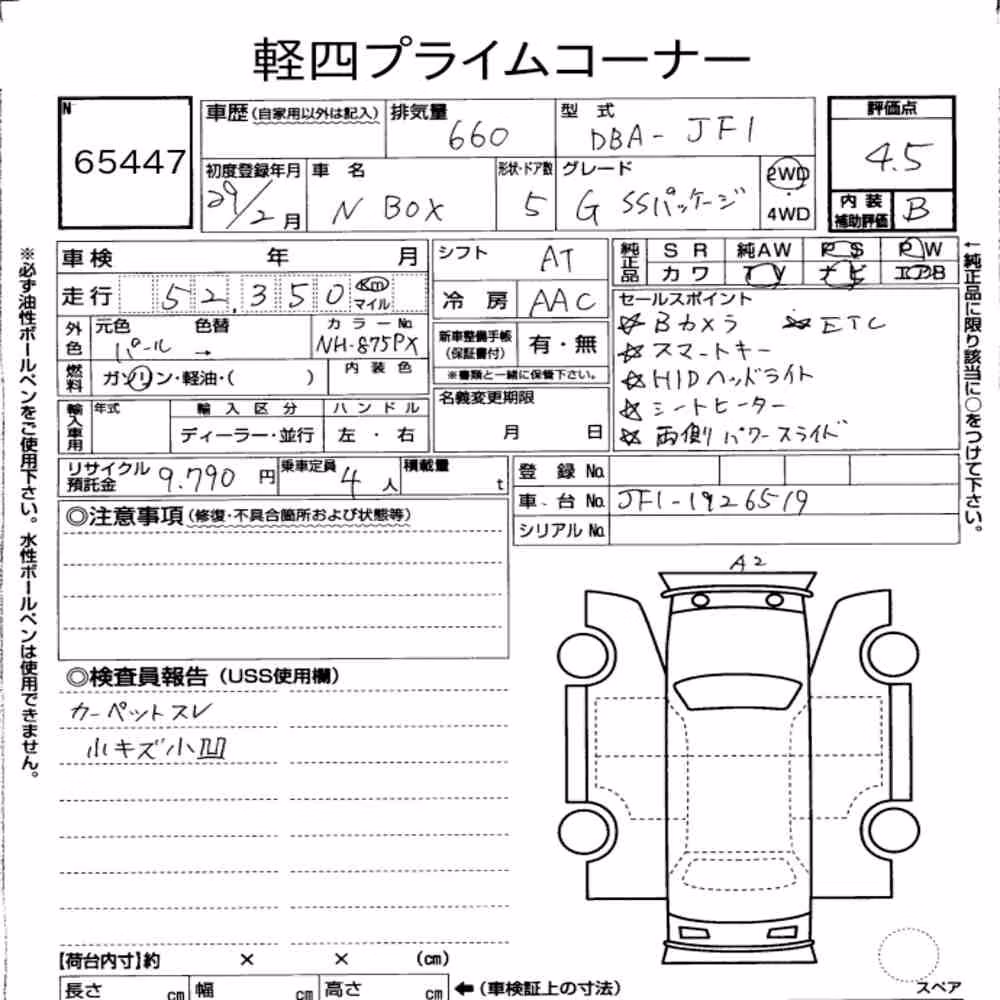 軽四プライムコーナー
N
65447
車歴(自家用以外は記入)
排気量
660
型 式
DBA-JF1
評価点
4.5
初度登録年月
29/2月
車 名
N BOX
形状・ドア数
5
グレード
G SSパッケージ
2WD
・
4WD
内 装
補助評価
B
車検 年 月
シフト
AT
純正品
S R 純AW P S P W
カワ T V ナビ エアB
走行 52,350 Km マイル
冷 房
AAC
セールスポイント
☆Bカメラ ☆ETC
☆スマートキー
☆HIDヘッドライト
☆シートヒーター
☆両側パワースライド
外色
元色 色替
パール →
カラーNo.
NH-875PX
新車整備手帳
(保証書付)
有・無
※書類と一緒に保管下さい。
燃料
ガソリン・軽油・( )
内 装 色
名義変更期限
月 日
輸入車用
年式
輸 入 区 分
ディーラー・並行
ハ ン ド ル
左 ・ 右
リサイクル
預託金
9.790円
乗車定員
4人
積載量
t
登 録 No.
車 台 No. JF1-1926519
シリアル No.
◎注意事項(修復・不具合箇所および状態等)
A2
◎検査員報告(USS使用欄)
カーペットスレ
小キズ小凹
【荷台内寸】約 × × (cm)
長さ cm 幅 cm 高さ cm
←(車検証上の寸法)
スペア
※必ず油性ボールペンをご使用下さい。水性ボールペンは使用できません。
←純正品に限り該当に○をつけて下さい。